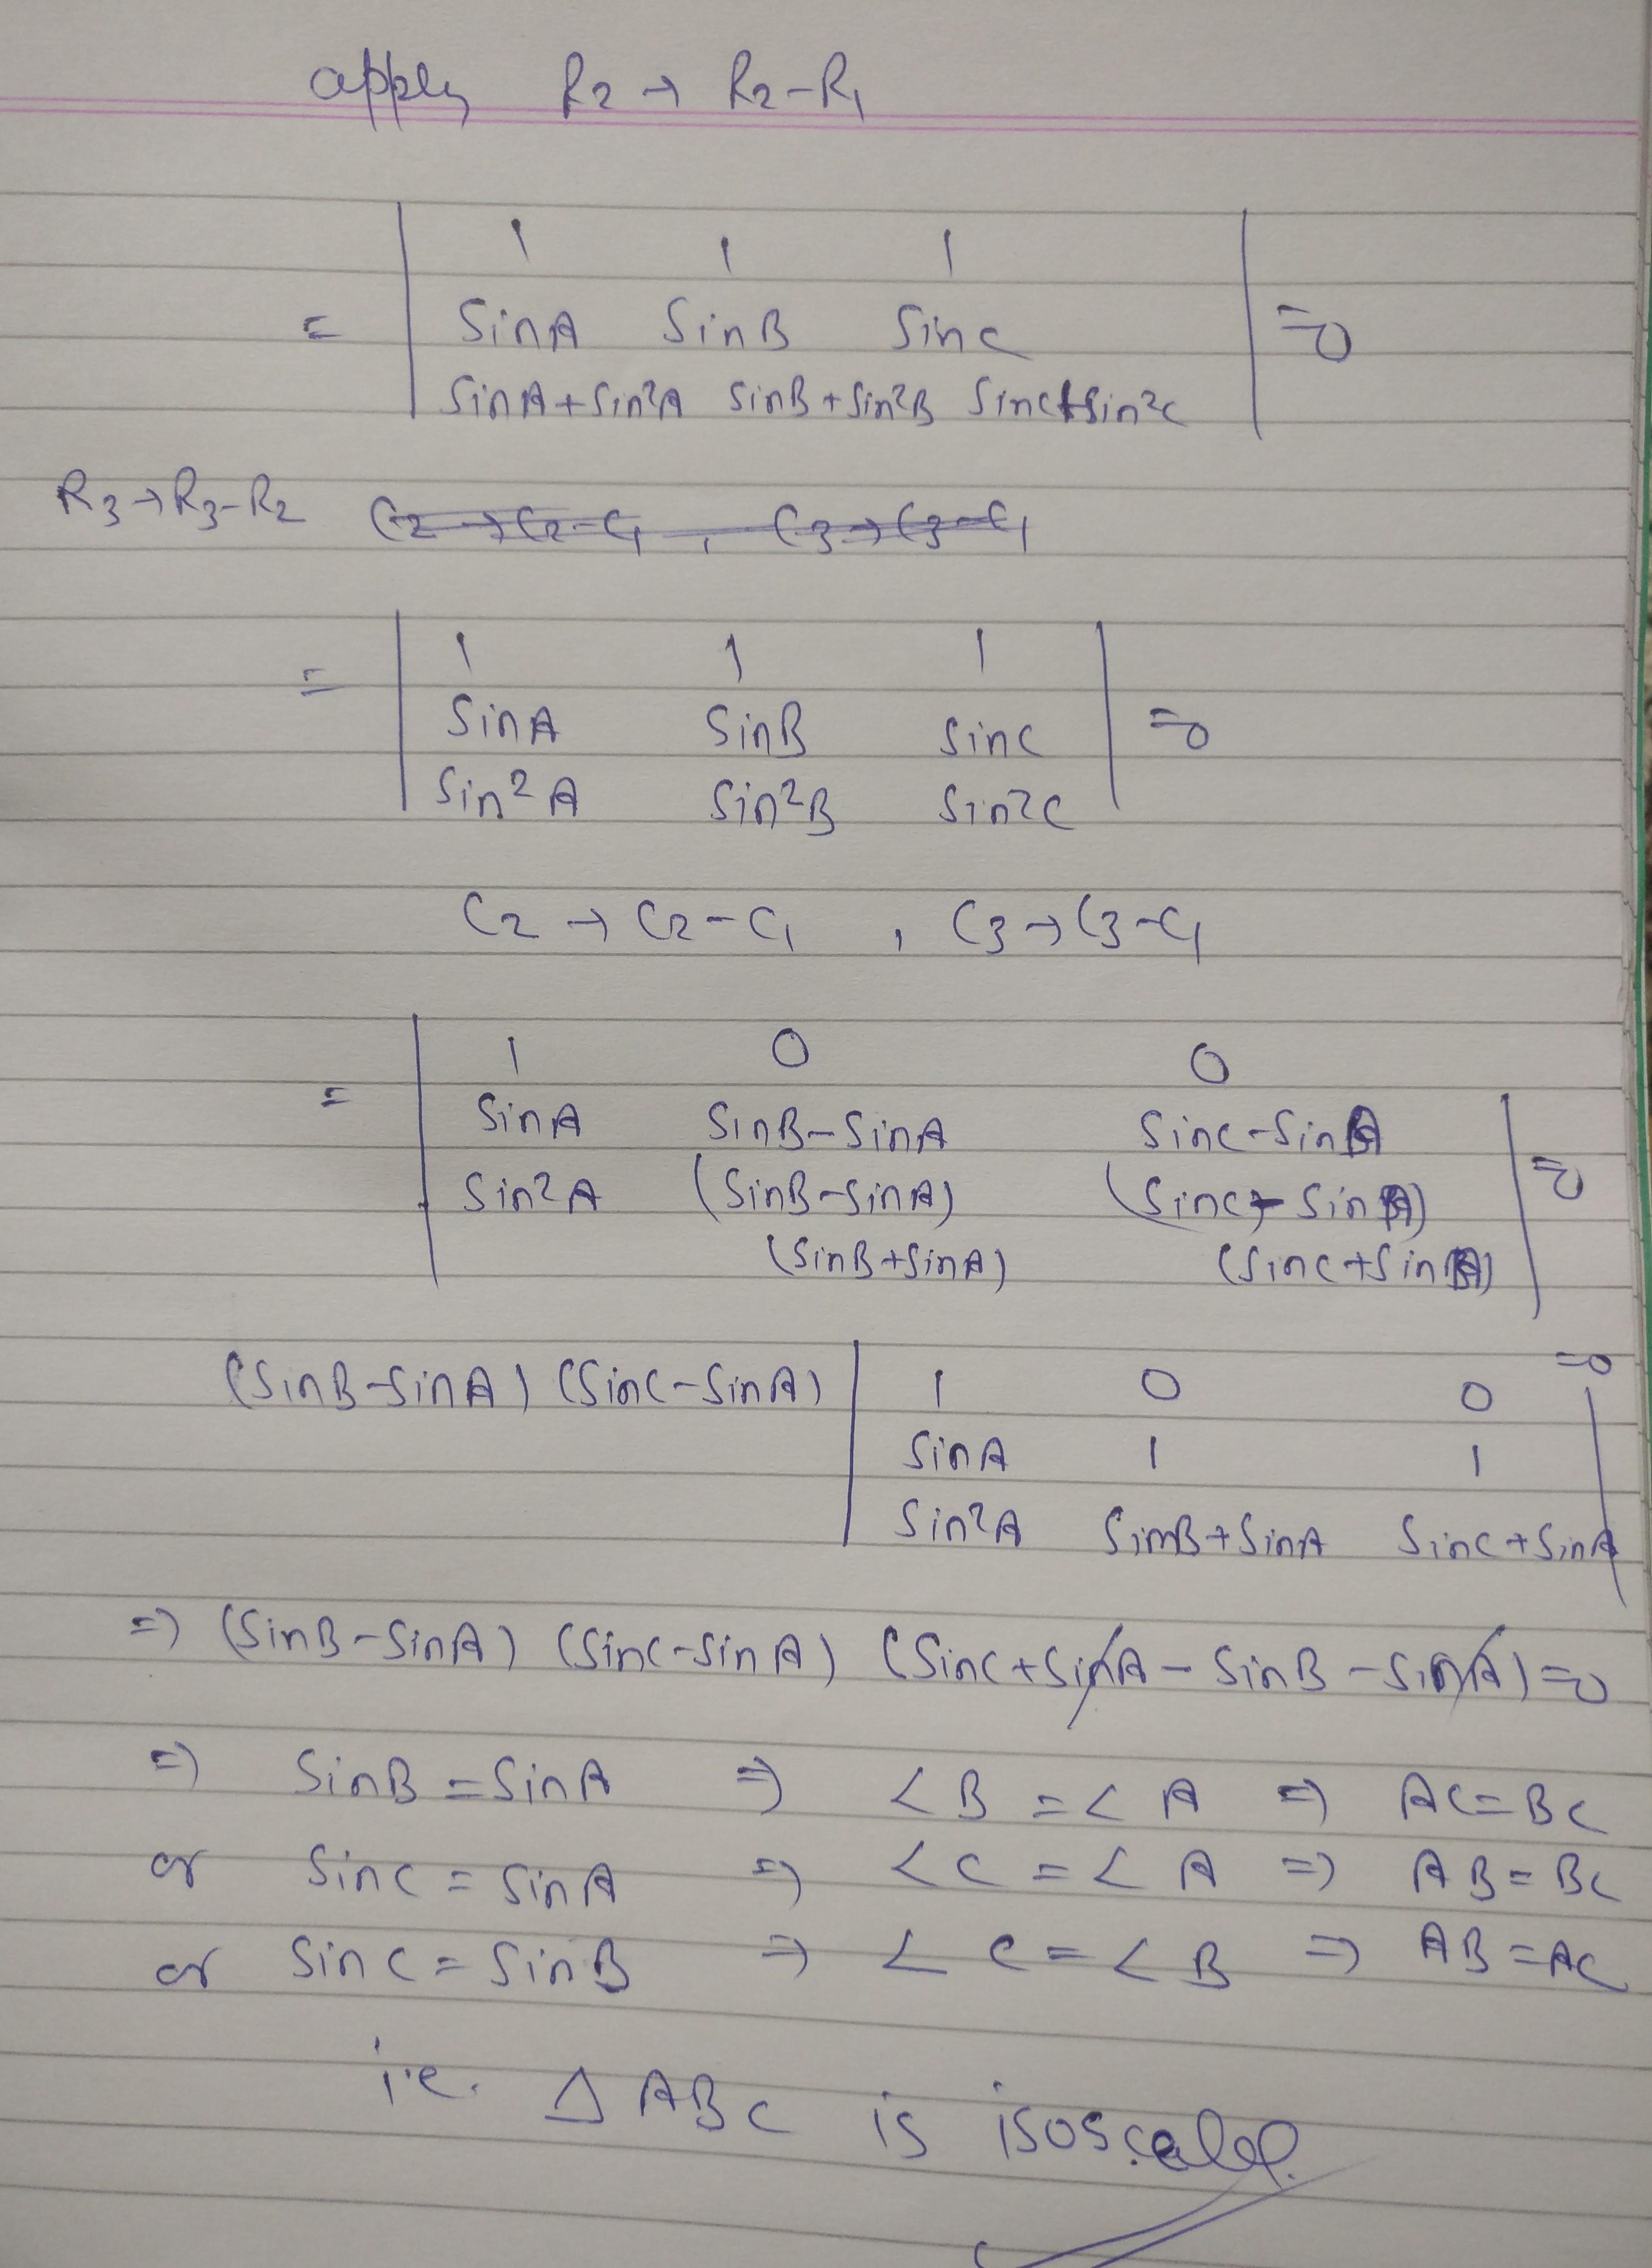 apply R2 → R2-R1
1 1 1
= SinA SinB Sinc =0
SinA+Sin²A SinB+Sin²B Sinc+Sin²c
R3→R3-R2 C2→C2-C1 , C3→C3-C1
1 1 1
= SinA SinB Sinc =0
Sin²A Sin²B Sin²C
C2 → C2-C1 , C3→C3-C1
1 0 0
= SinA SinB-SinA Sinc-SinA =0
Sin²A (SinB-SinA) (Sinc-SinA)
(SinB+SinA) (Sinc+SinA)
(SinB-SinA) (SinC-SinA) 1 0 0 =0
SinA 1 1
Sin²A SinB+SinA Sinc+SinA
=> (SinB-SinA) (Sinc-SinA) (Sinc+SinA-SinB-SinA)=0
=> SinB=SinA => ∠B=∠A => AC=BC
or Sinc=SinA => ∠C=∠A => AB=BC
or SinC=SinB => ∠C=∠B => AB=AC
i.e. Δ ABC is